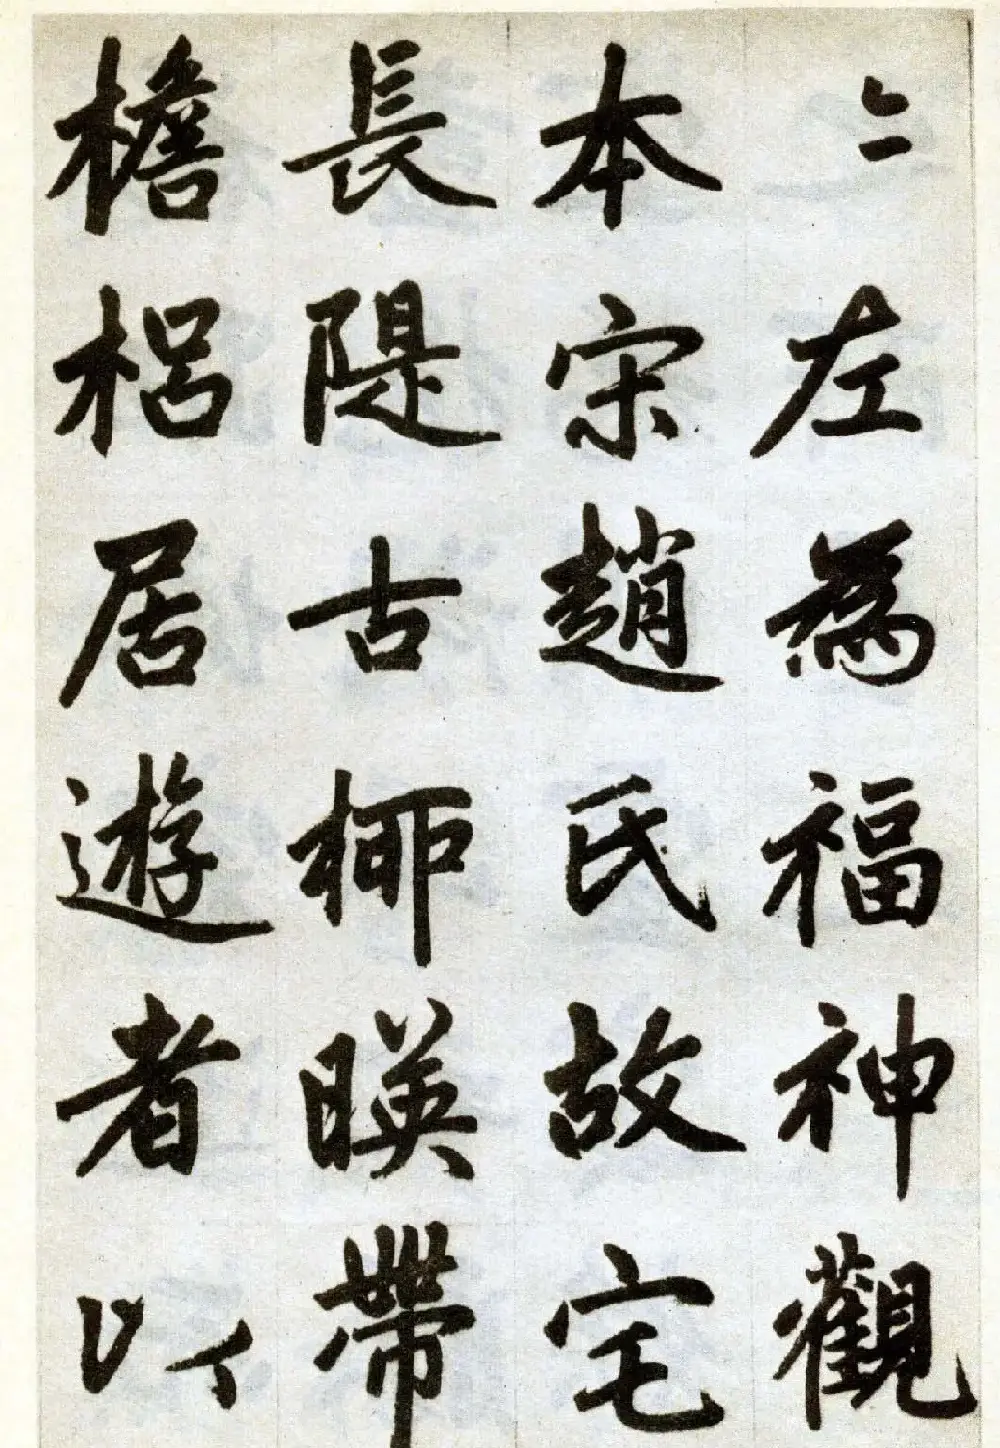 〻左為福神觀
本宋趙氏故宅
長隄古柳暎帶
檐梠居遊者以